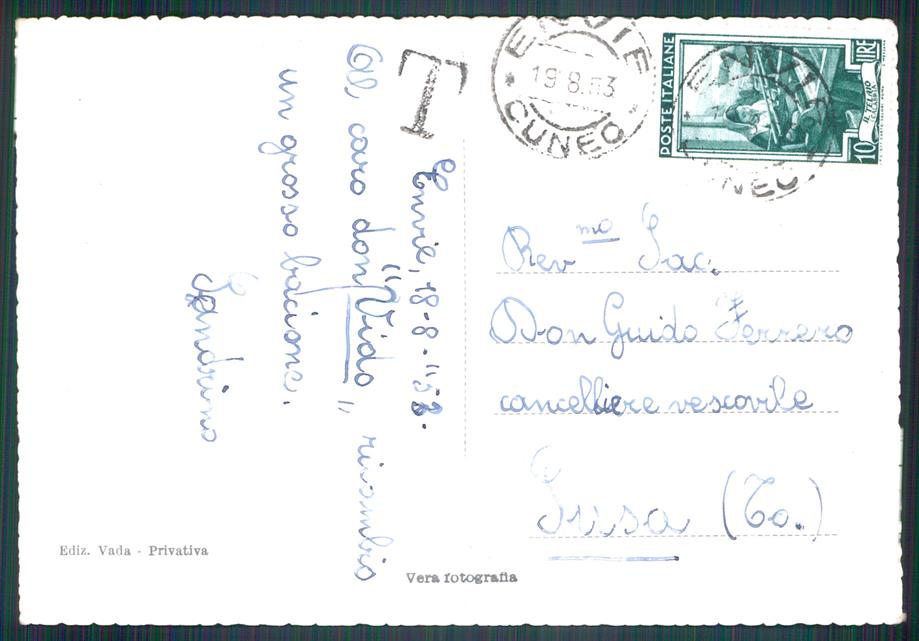 Envie, 18-8-"53.
Al caro don "Vido" ricambio
un grosso bacione.
Sandrino
T
ENVIE
19.8.53
CUNEO
POSTE ITALIANE
LIRE
10
IL TELAIO
Rev mo Sac.
Don Guido Ferrero
cancelliere vescovile
Susa (To.)
Ediz. Vada - Privativa
Vera fotografia